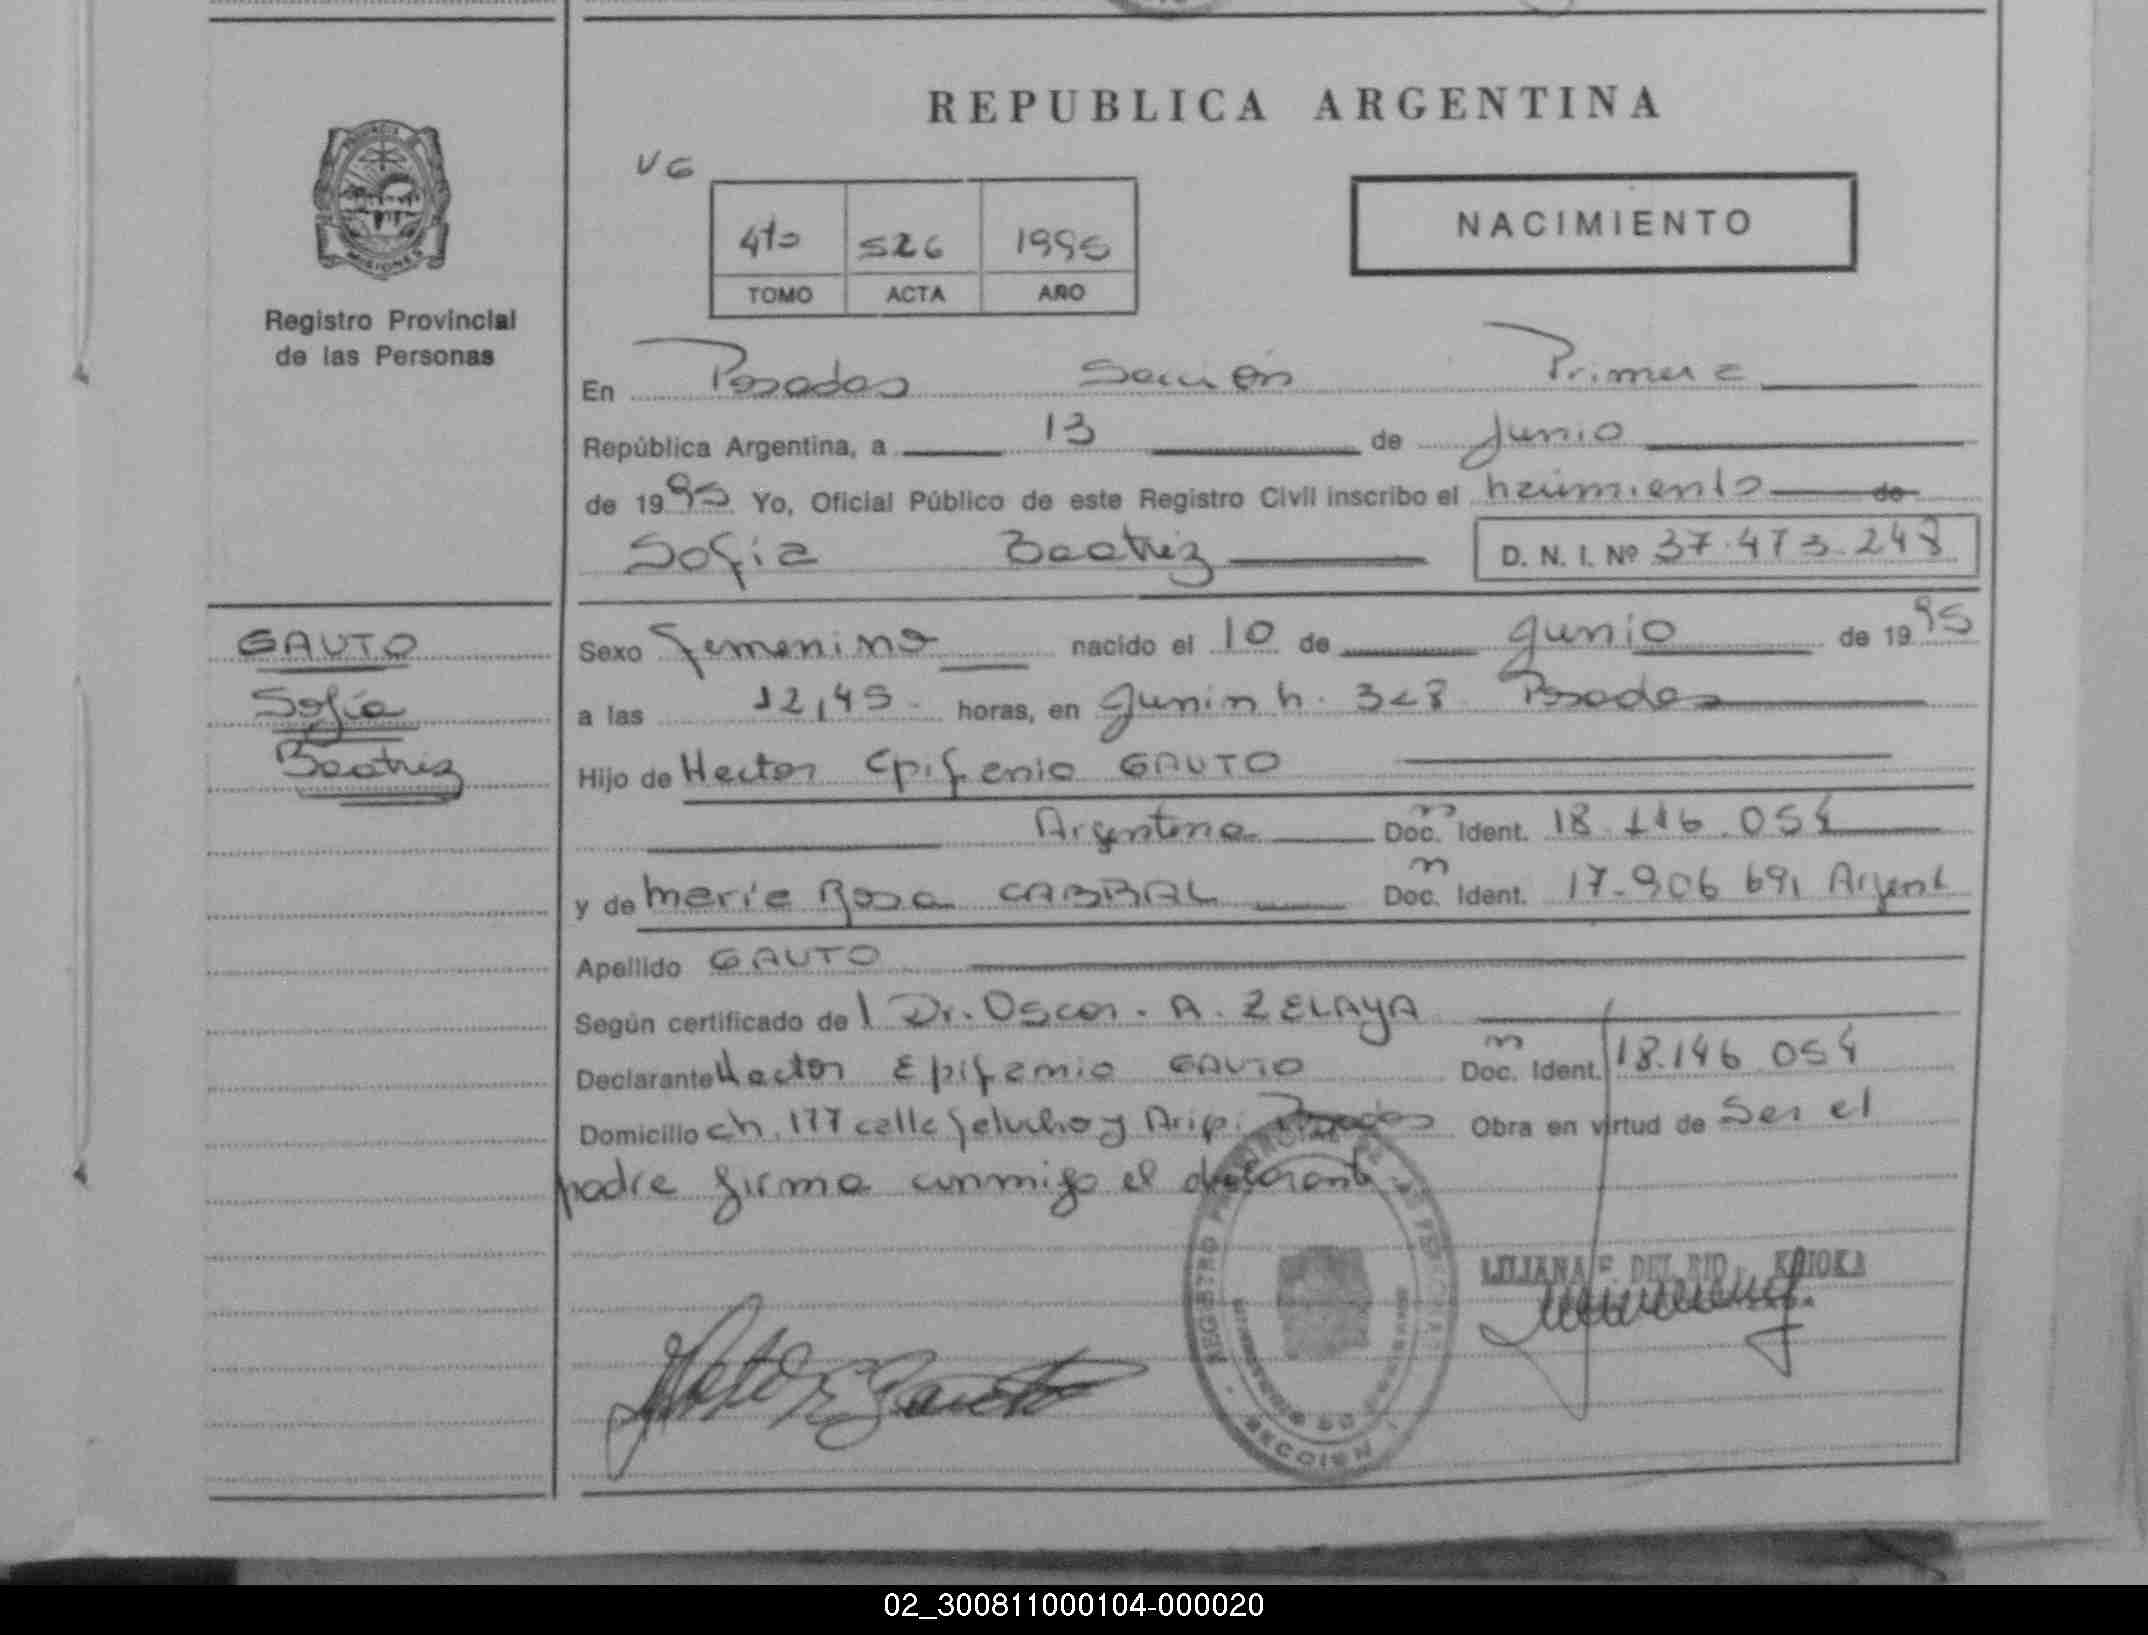 REPUBLICA ARGENTINA
VG
NACIMIENTO
4to 526 1995
TOMO ACTA AÑO
MISIONES
Registro Provincial
de las Personas
En Posadas Sección Primera
República Argentina, a 13 de Junio
de 1995 Yo, Oficial Público de este Registro Civil inscribo el nacimiento de
Sofia Beatriz D. N. I. Nº 37.473.248
GAUTO
Sofía
Beatriz
Sexo Femenino nacido el 10 de Junio de 1995
a las 12,45 horas, en Junin n. 328 Posadas
Hijo de Hector Epifenio GAUTO
Argentino Doc. Ident. 18.116.054
y de Maria Rosa CABRAL Doc. Ident. 17.906 691 Argent
Apellido GAUTO
Según certificado del Dr. Oscar A. ZELAYA
Declarante Hector Epifenio GAUTO Doc. Ident. 18.146 054
Domicilio ch. 177 calle y Posadas Obra en virtud de Ser el
padre firma conmigo el declarante
REGISTRO PROVINCIAL DE LAS PERSONAS
SECCION
LILIANA F. DEL RIO
02_300811000104-000020